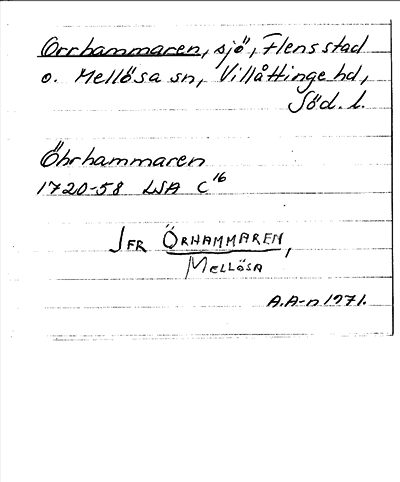 Orrhammaren, sjö, Flens stad
o. Mellösa sn, Villåttinge hd,
Söd. l.
Öhrhammaren
1720-58 LSA C16
JFR ÖRHAMMAREN,
MELLÖSA
A.A-n 1971.